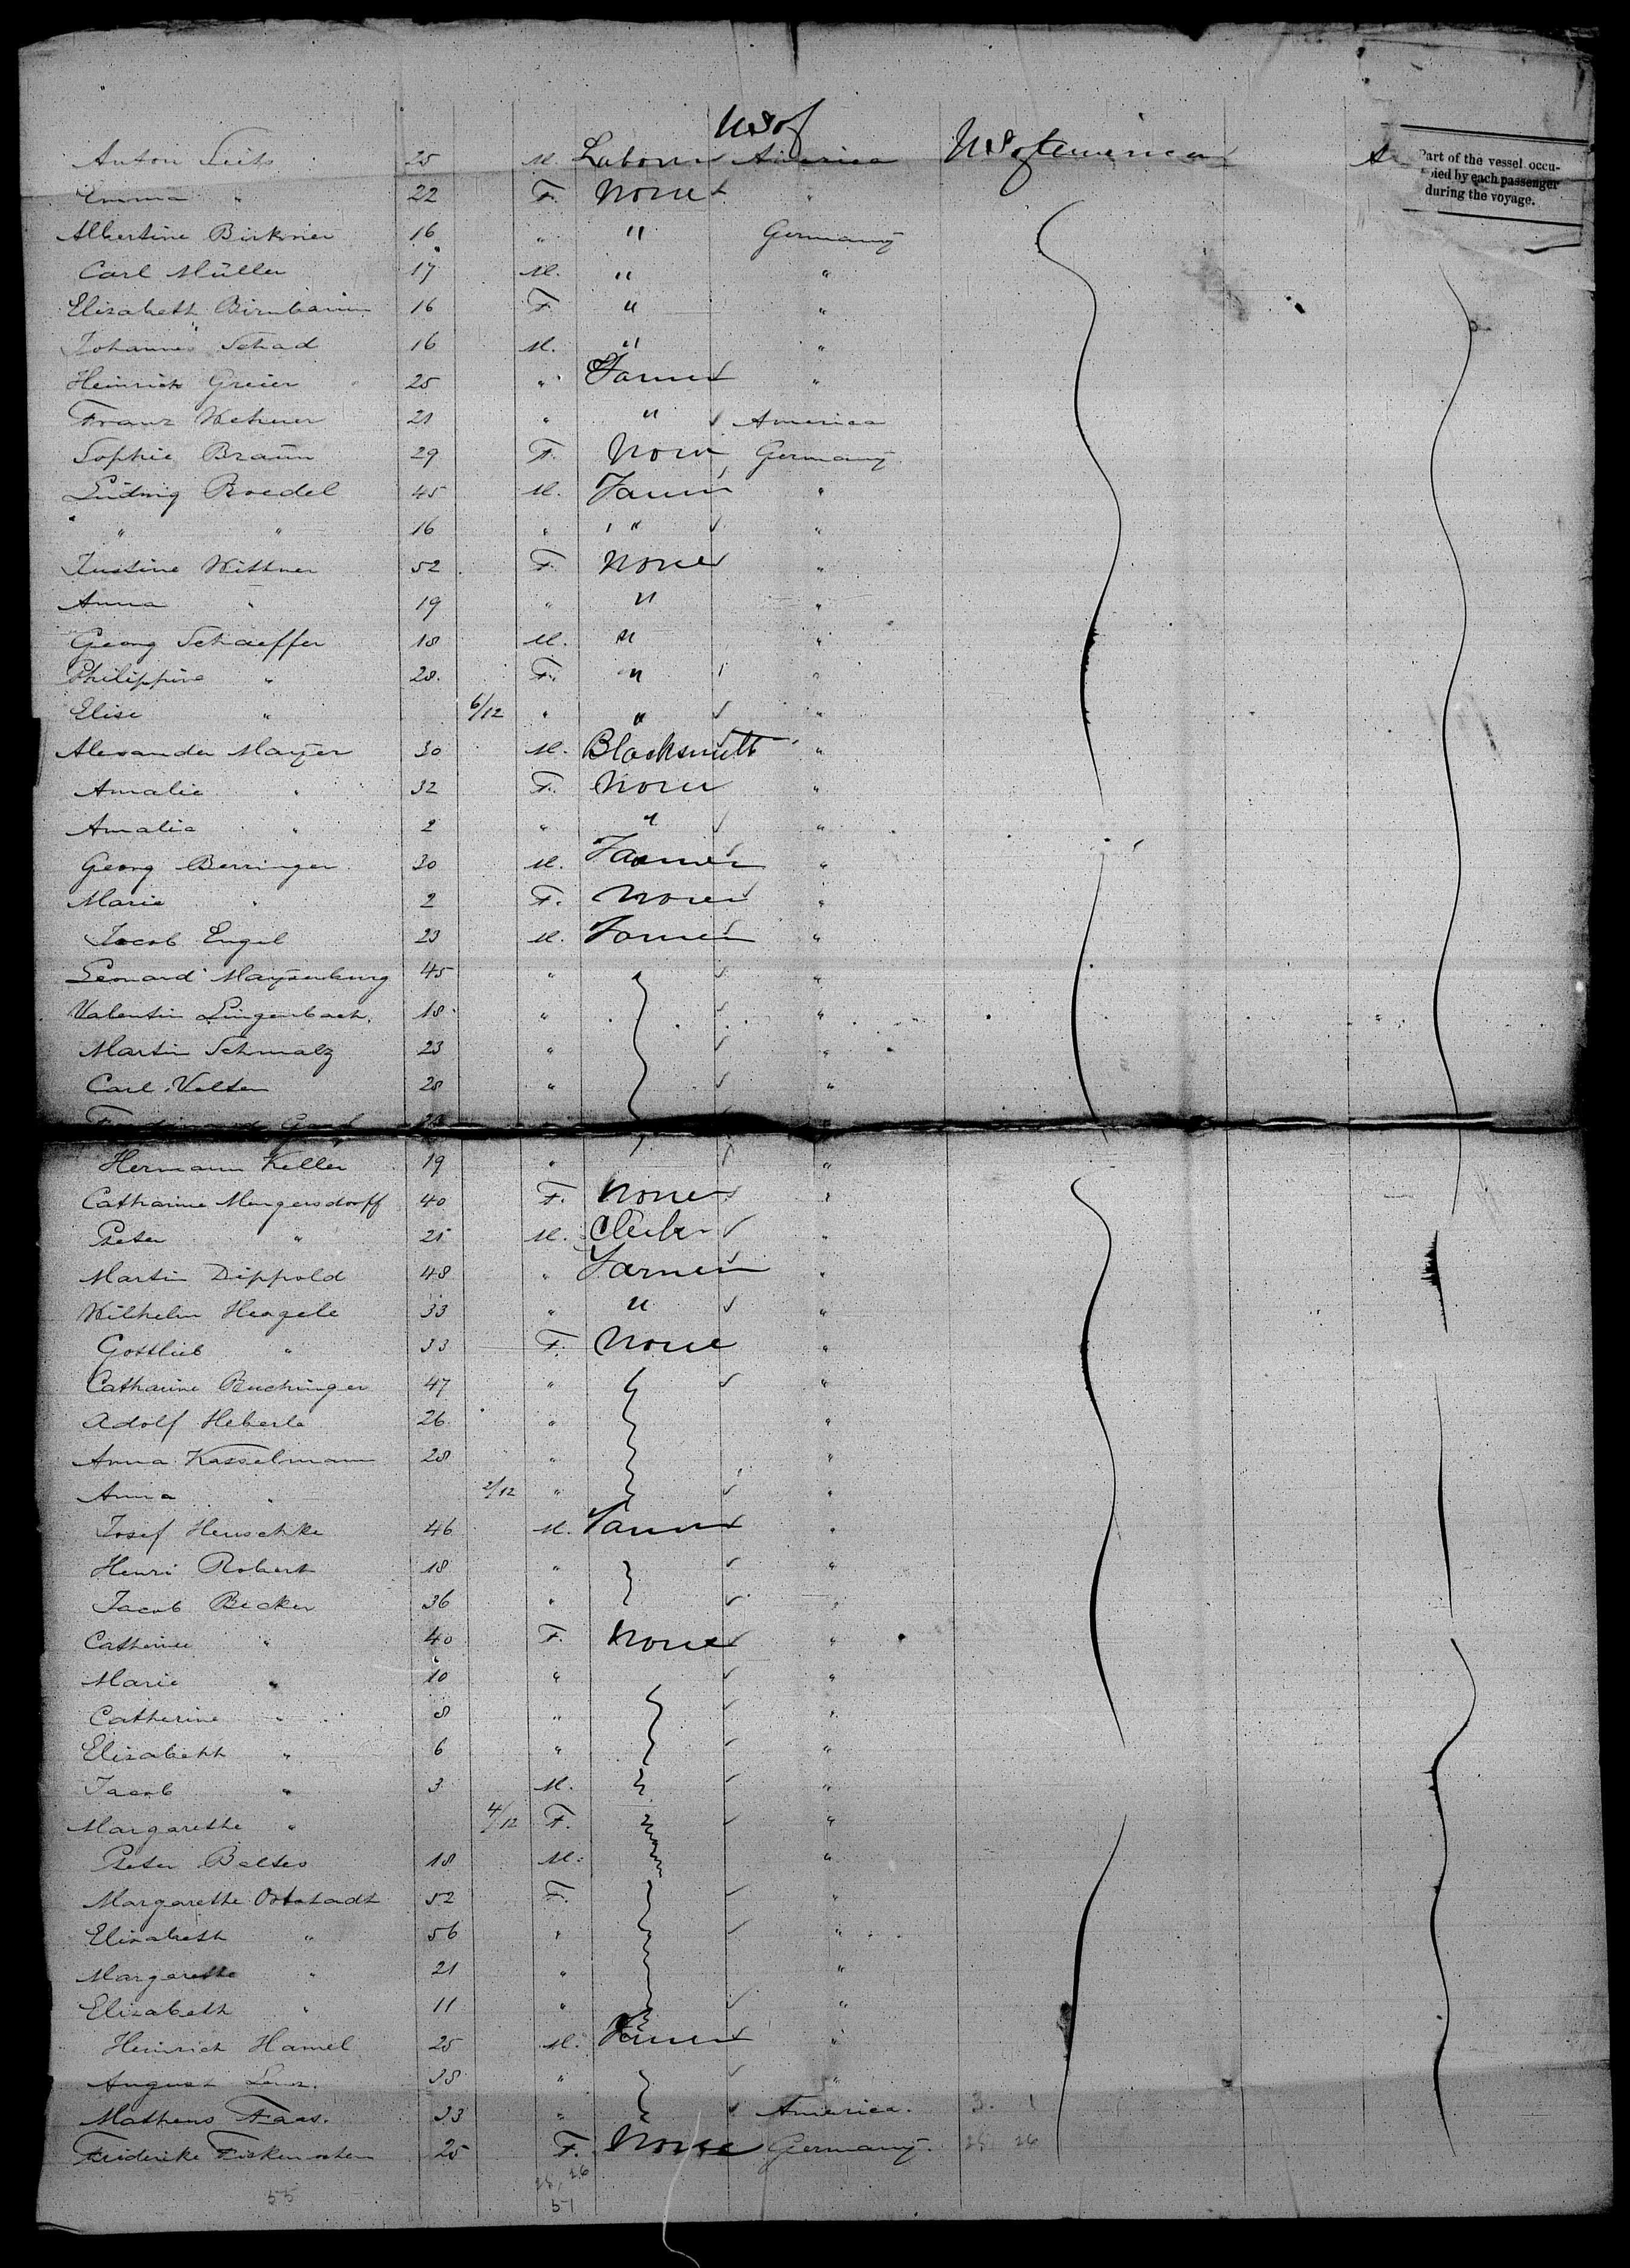 U S of
Anton 25 M. Labourer America U S of America
Part of the vessel occu-
pied by each passenger
during the voyage.
Emma " 22 F. None "
Albertine Birkner 16 " " Germany
Carl Müller 17 M. " "
Elisabeth Birnbaum 16 F. " "
Johannes Schad 16 M. " "
Heinrich Greier 25 " Farmer "
Franz 21 " " America
Sophie Braun 29 F. None Germany
Ludwig Roedel 45 M. Farmer "
" " 16 " " "
Justine Wittner 52 F. None "
Anna " 19 " " "
Georg Schaeffer 18 M. " "
Philippine " 28. F. " "
Elise " 6/12 " " "
Alexander Mayer 30 M. Blacksmith "
Amalie " 32 F. None "
Amalia " 2 " " "
Georg Berringer 30 M. Farmer "
Marie " 2 F. None "
Jacob Engel 23 M. Farmer "
Leonard Maysenburg 45 " "
Valentin Lingenbach. 18 " "
Martin Schmalz 23 " "
Carl Velten 28 " "
Ferdinand
Hermann Keller 19 " "
Catharine Mengersdorff 40 F. None "
Peter " 21 M. Clerk "
Martin Dippold 48 " Farmer "
Wilhelm Heagele 33 " " "
Gottlieb " 33 F. None "
Catharine Buchinger 47 " "
Adolf Heberle 26 " "
Anna Kasselmann 28 " "
Anna " 2/12 " "
Josef Henschke 46 M. Farmer "
Henri Robert 18 " "
Jacob Becker 36 " "
Catherine " 40 F. None "
Marie " 10 " "
Catherine " 8 " "
Elisabeth " 6 " "
Jacob " 3 M. "
Margarethe " 4/12 F. "
Peter Baltes 18 M. "
Margarethe Ortstadt 52 F. "
Elisabeth " 56 " "
Margarethe " 21 " "
Elisabeth " 11 " "
Heinrich Hamel 25 M. Farmer "
August 38 " "
Matheus Faas. 33 " America. 3. 1
Friderike 25 F. None Germany. 25 26
55 25, 26
51